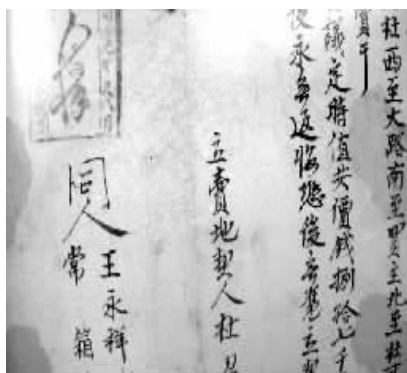 杜西至大路南至買主北至杜
賣于
議定時值共價錢捌拾七千
後永無返悔恐後無憑立契
立賣地契人杜
同人王永祥
常箱